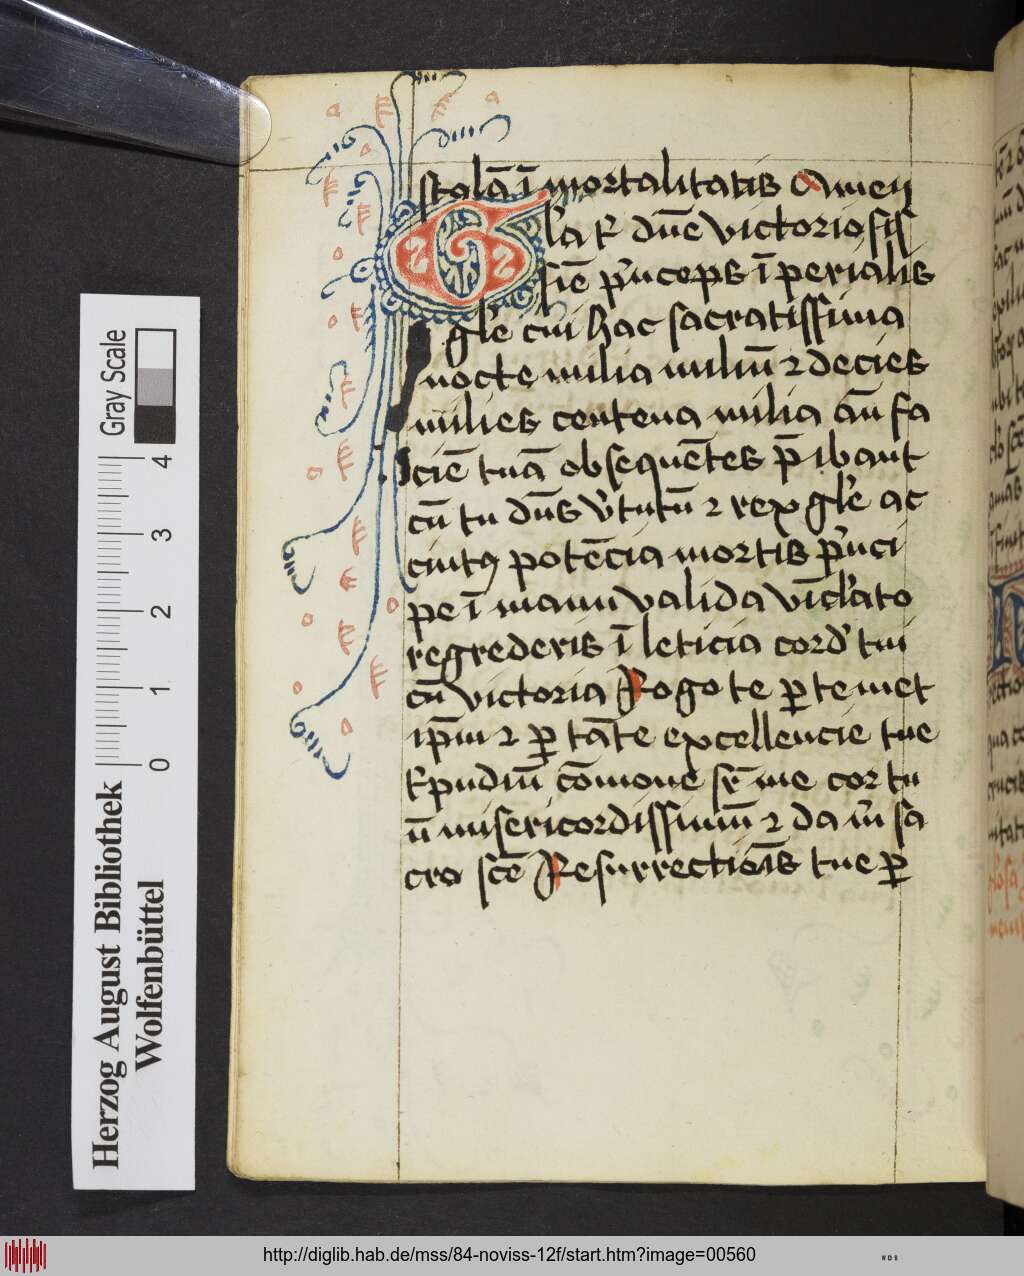 stolā ī mortalitatis Amen
Gl'a t' dn̄e victoriosis
siē p'nceps īperialis
gl'e cui hac sacratissima
nocte milia miliū ⁊ decies
milies centena milia an̄ fa
ciē tuā obsequētes p̄ibant
cū tu dn̄s v'tutū ⁊ rex gl'e ac
cintꝯ potēcia mortis p'nci
pe ī manu valida vīc'lato
regrederis ī leticia cord' tui
cū victoria Rogo te ꝑ temet
ip̄m ⁊ ꝑ tāte excellencie tue
t'pudiū cōmoue sr̄ me cor tu
ū misericordissimū ⁊ da m' sa
cro sc̄e Resurrectiōis tue ꝑ
Herzog August Bibliothek
Wolfenbüttel
Gray Scale
0 1 2 3 4
http://diglib.hab.de/mss/84-noviss-12f/start.htm?image=00560